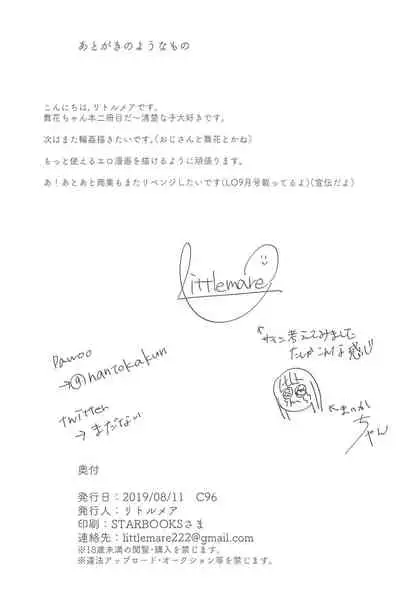 あとがきのようなもの
こんにちは、リトルメアです。
舞花ちゃん本二冊目だ～清楚な子大好きです。
次はまた輪姦描きたいです。(おじさんと舞花とかね)
もっと使えるエロ漫画を描けるように頑張ります。
あ！あとあと商業もまたリベンジしたいです(LO9月号載ってるよ)(宣伝だよ)
littlemare
サイン考えてみました
たしかこんな感じ
ちゃん
Pawoo
→@nantokakun
twitter
→まだない
奥付
発行日：2019/08/11 C96
発行人：リトルメア
印刷：STARBOOKSさま
連絡先：littlemare222@gmail.com
※18歳未満の閲覧・購入を禁じます。
※違法アップロード・オークション等を禁じます。